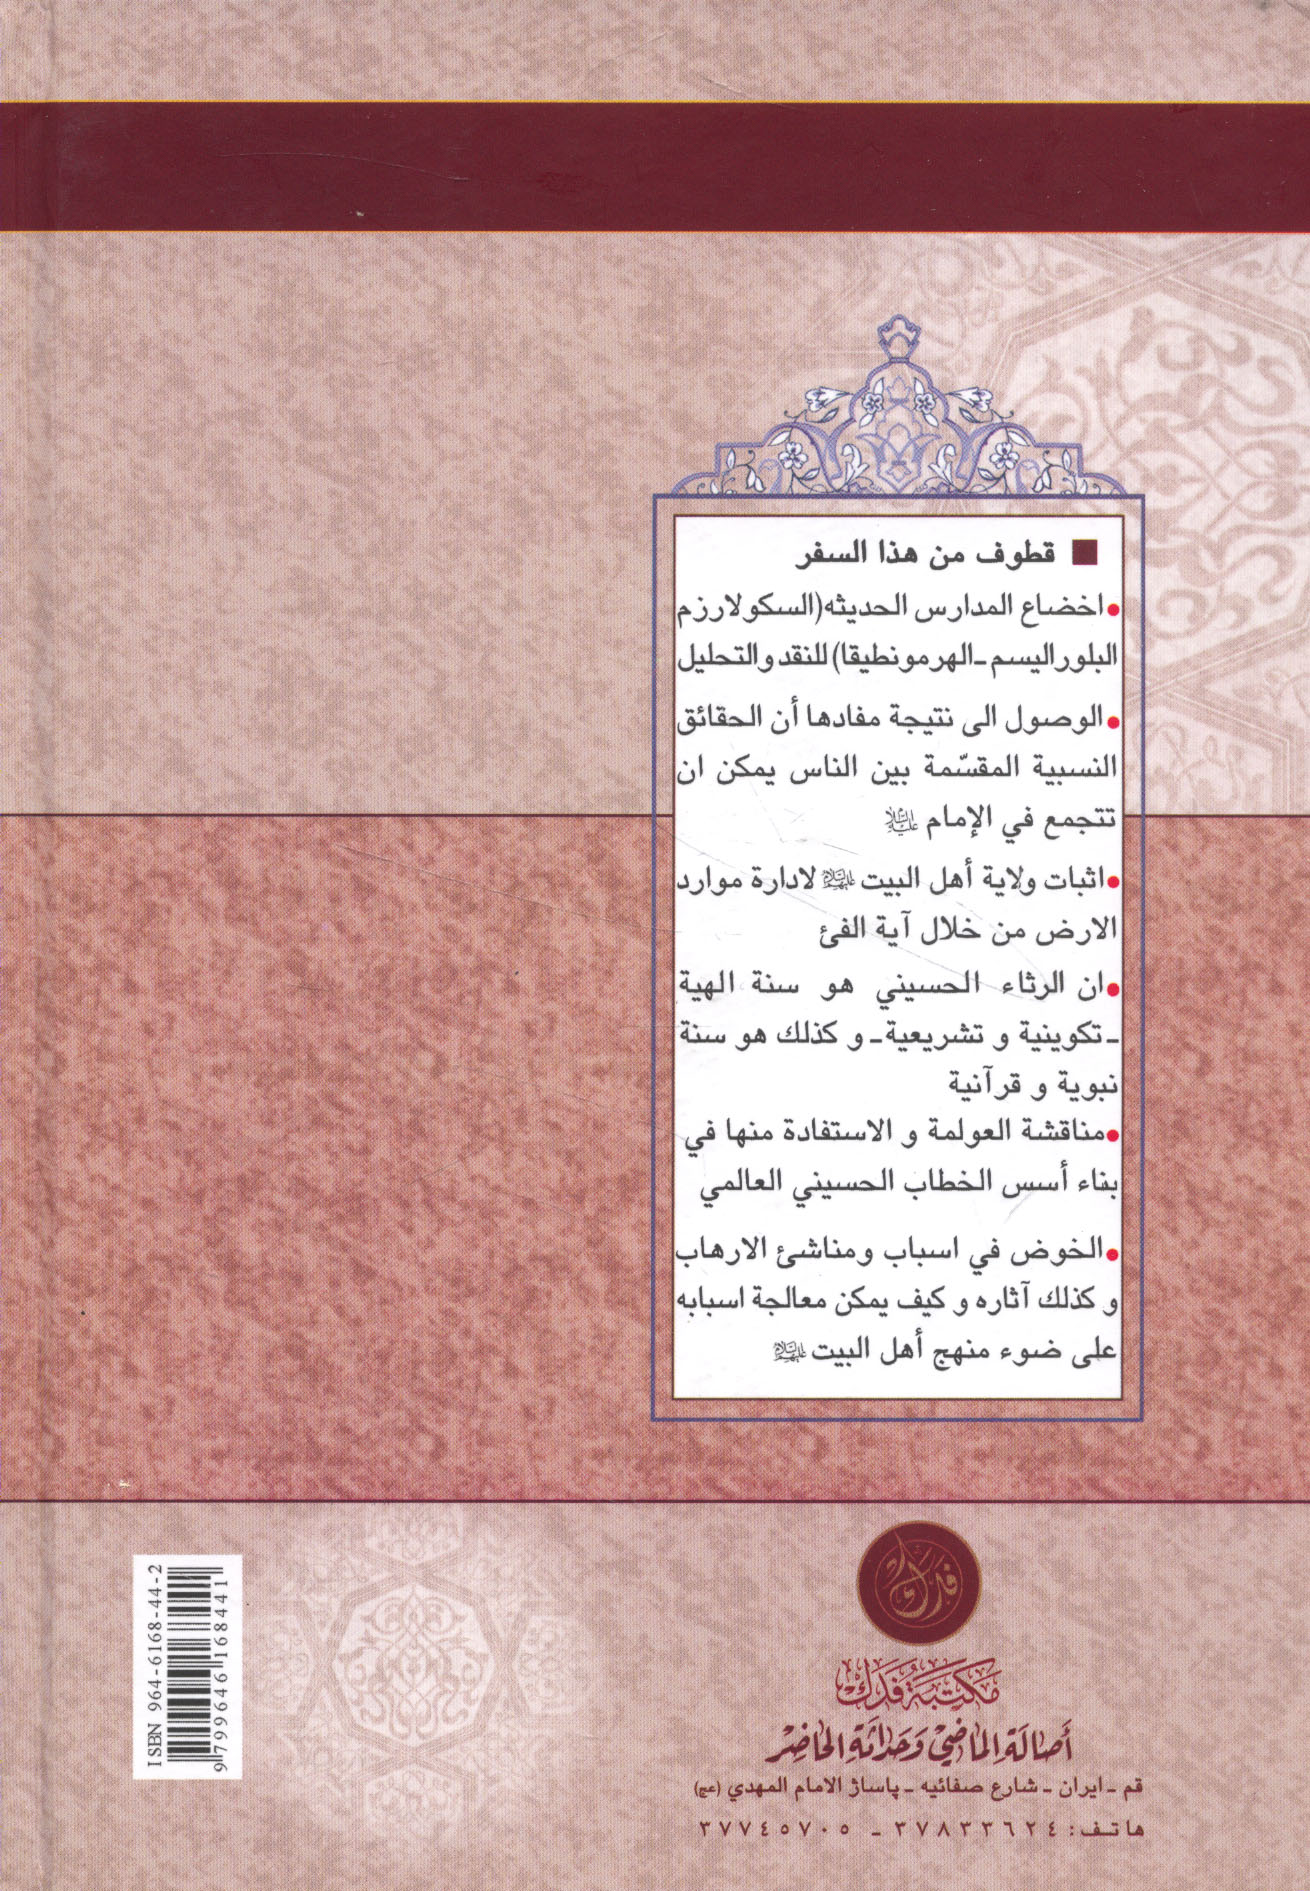 ■ قطوف من هذا السفر
•اخضاع المدارس الحديثه(السكولارزم
البلوراليسم ـ الهرمونطيقا) للنقد والتحليل
•الوصول الى نتيجة مفادها أن الحقائق
النسبية المقسّمة بين الناس يمكن ان
تتجمع في الإمام عليه السلام
•اثبات ولاية أهل البيت عليهم السلام لادارة موارد
الارض من خلال آية الفئ
•ان الرثاء الحسيني هو سنة الهية
ـ تكوينية و تشريعية ـ و كذلك هو سنة
نبوية و قرآنية
•مناقشة العولمة و الاستفادة منها في
بناء أسس الخطاب الحسيني العالمي
•الخوض في اسباب ومناشئ الارهاب
و كذلك آثاره و كيف يمكن معالجة اسبابه
على ضوء منهج أهل البيت عليهم السلام
فدك
مكتبة فدك
أصالة الماضي وحداثة الحاضر
قم ـ ايران ـ شارع صفائيه ـ پاساژ الامام المهدي (عج)
هاتف: ٣٧٨٣٣٦٢٤ ـ ٣٧٧٤٥٧٠٥
ISBN 964-6168-44-2
9799646168441